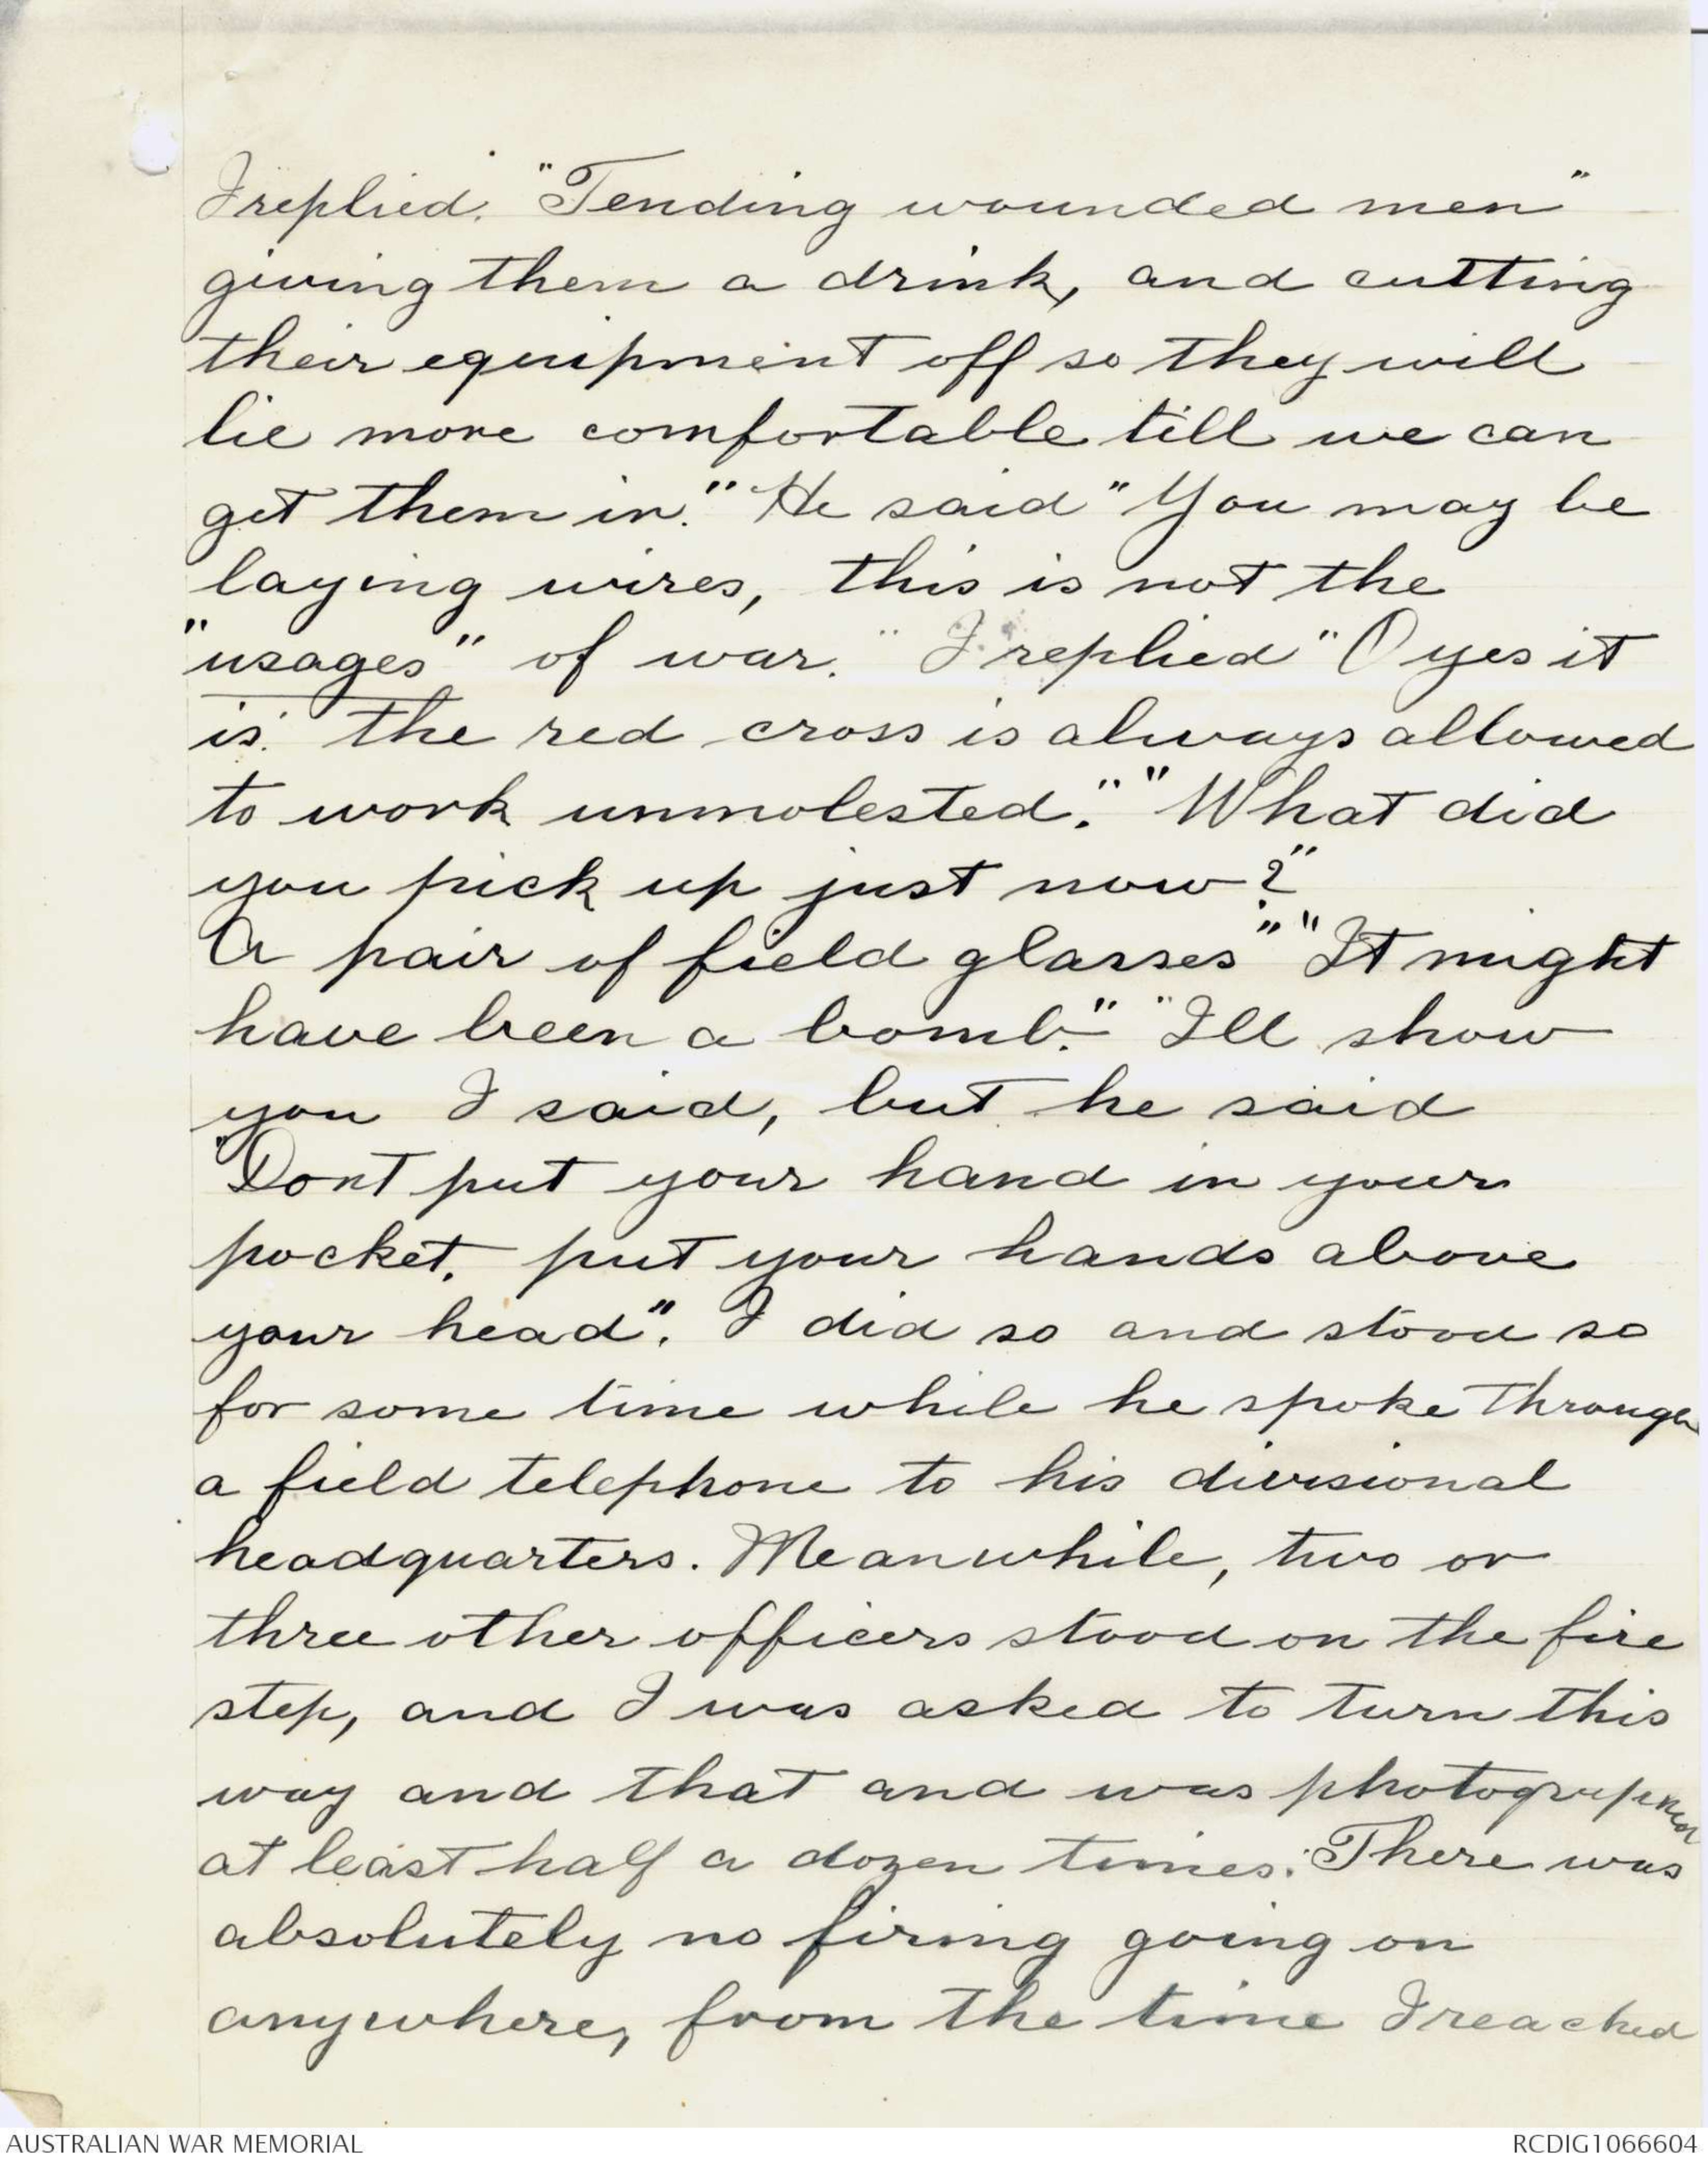 I replied. "Tending wounded men"
giving them a drink, and cutting
their equipment off so they will
lie more comfortable till we can
get them in." He said "You may be
laying wires, this is not the
"usages" of war." I replied "O yes it
is. the red cross is always allowed
to work unmolested." "What did
you pick up just now?"
A pair of field glasses" "It might
have been a bomb." "Ill show
you I said, but he said
"Dont put your hand in your
pocket. put your hands above
your head". I did so and stood so
for some time while he spoke through
a field telephone to his divisional
headquarters. Meanwhile, two or
three other officers stood on the fire
step, and I was asked to turn this
way and that and was photographed
at least half a dozen times. There was
absolutely no firing going on
anywhere, from the time I reached
AUSTRALIAN WAR MEMORIAL
RCDIG1066604